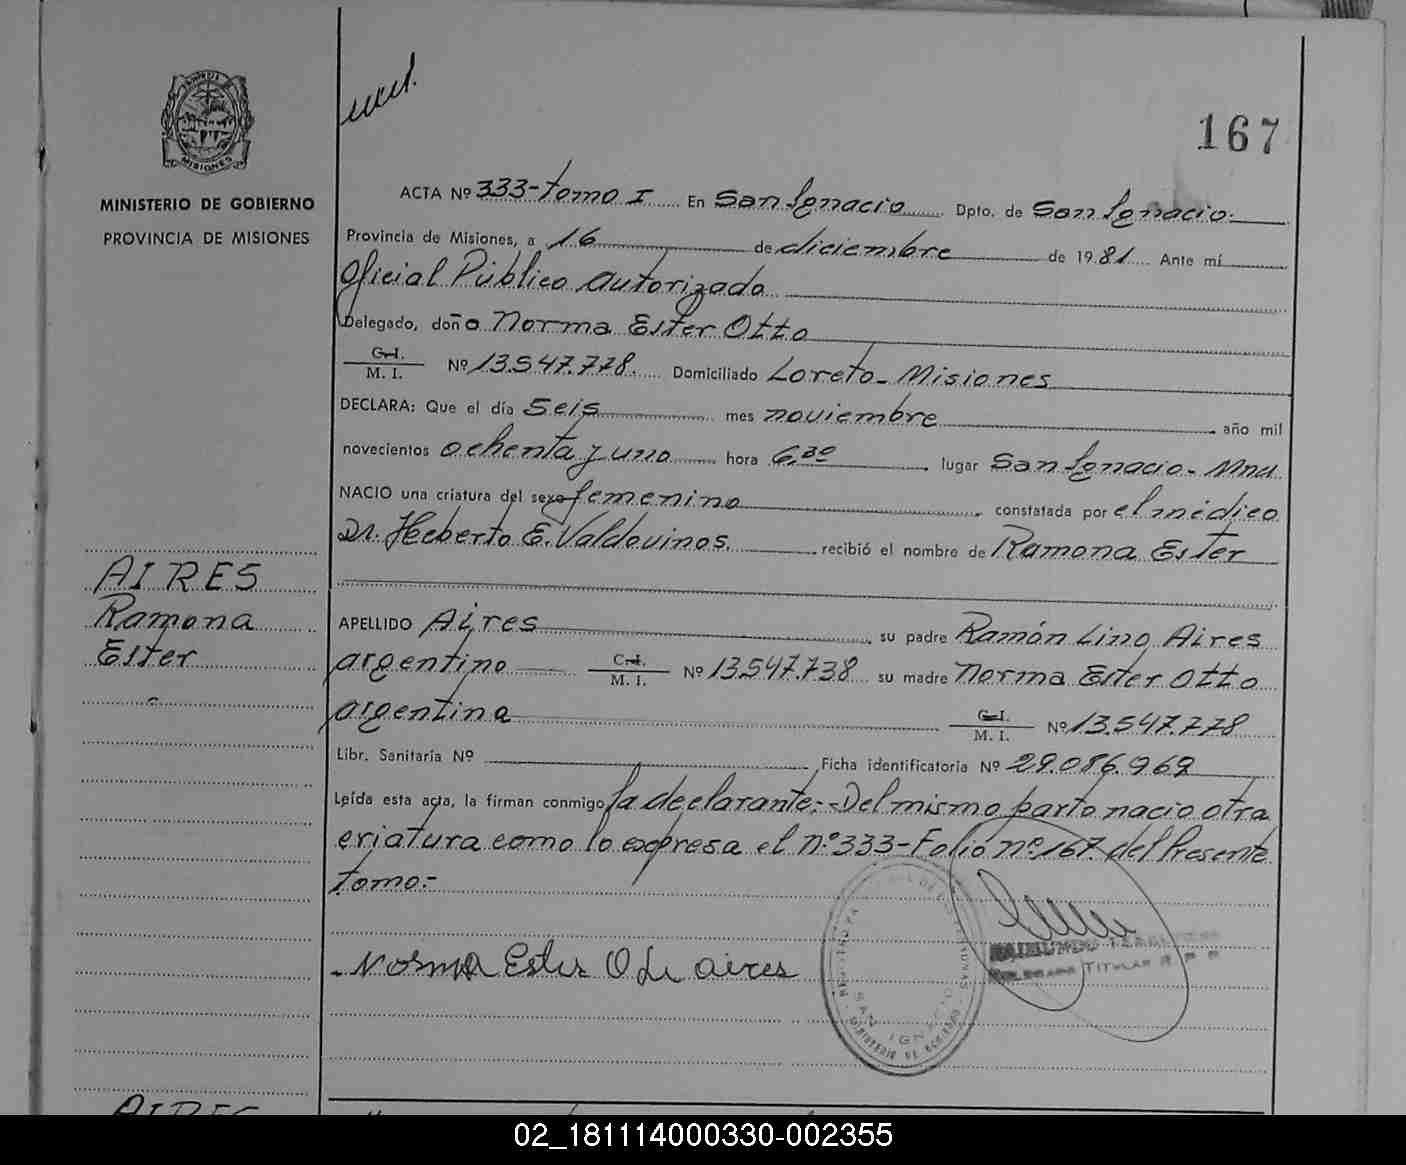 167
MISIONES
MINISTERIO DE GOBIERNO
PROVINCIA DE MISIONES
ACTA Nº 333-Tomo I En San Ignacio Dpto. de San Ignacio.
Provincia de Misiones, a 16 de diciembre de 1981 Ante mí
Oficial Público Autorizado
Delegado, doña Norma Ester Otto
C.I.
M. I. Nº 13.547.778. Domiciliado Loreto - Misiones
DECLARA: Que el día Seis mes noviembre año mil
novecientos ochenta y uno hora 6,30 lugar San Ignacio - Mnes.
NACIO una criatura del sexo femenino constatada por el médico
Dr. Heberto E. Valdovinos. recibió el nombre de Ramona Ester
AIRES
Ramona
Ester
APELLIDO Aires su padre Ramón Lino Aires
argentino C.I. M. I. Nº 13.547.738 su madre Norma Ester Otto
argentina C.I. M. I. Nº 13.547.778
Libr. Sanitaria Nº Ficha identificatoria Nº 29.086.969
Leída esta acta, la firman conmigo la declarante:- Del mismo parto nacio otra
criatura como lo expresa el nº 333-Folio nº 167. del Presente
tomo:-
Norma Ester O de aires
RAIMUNDO
DELEGADO TITULAR R P P
SAN IGNACIO
MINISTERIO DE GOBIERNO
AIRES
02_181114000330-002355